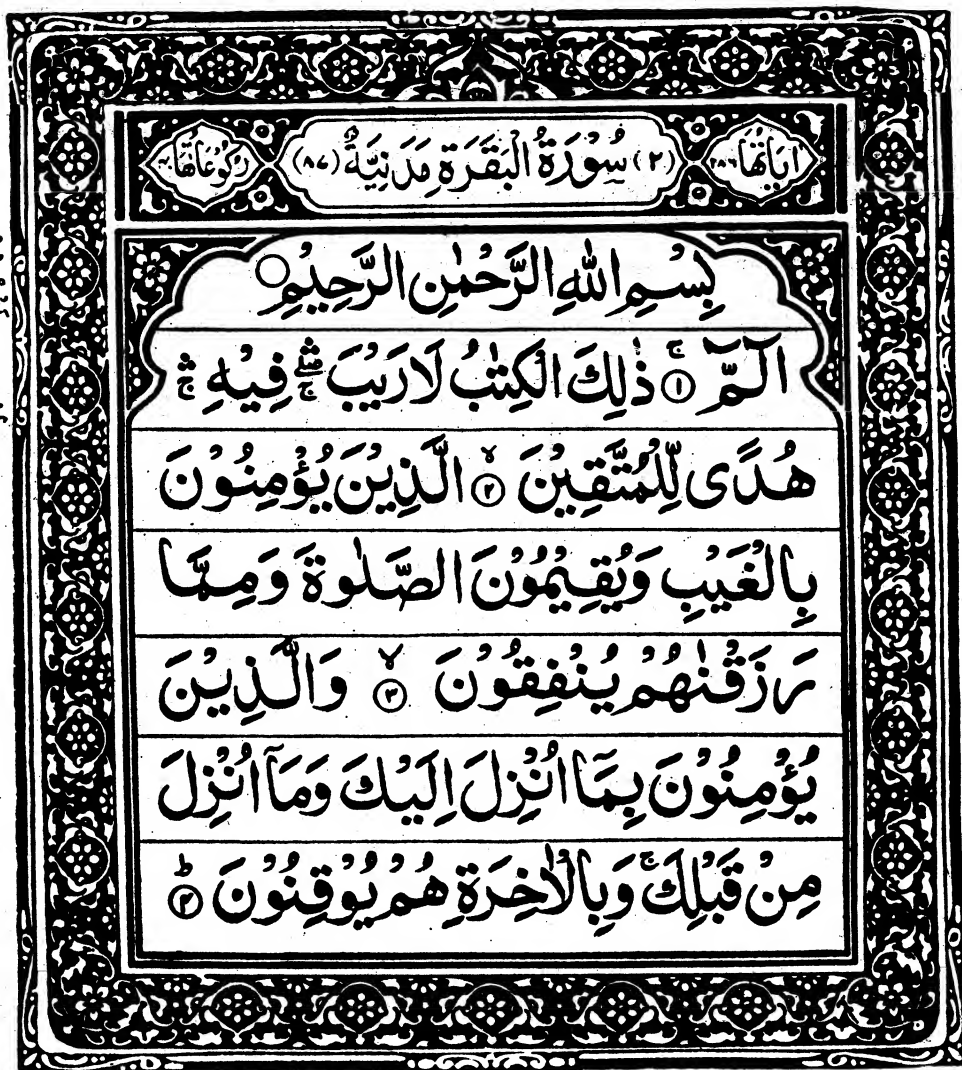 اٰيَاتُهَا ٢٨٦ (٢) سُوْرَةُ الْبَقَرَةِ مَدَنِيَّةٌ (٨٧) رُكُوْعَاتُهَا
بِسْمِ اللّٰهِ الرَّحْمٰنِ الرَّحِيْمِ
الٓمّٓ ۚ ١ ذٰلِكَ الْكِتٰبُ لَا رَيْبَ ۛ ۚ فِيْهِ ۛ ۚ
هُدًى لِّلْمُتَّقِيْنَ ۙ ٢ الَّذِيْنَ يُؤْمِنُوْنَ
بِالْغَيْبِ وَيُقِيْمُوْنَ الصَّلٰوةَ وَمِمَّا
رَزَقْنٰهُمْ يُنْفِقُوْنَ ۙ ٣ وَالَّذِيْنَ
يُؤْمِنُوْنَ بِمَآ اُنْزِلَ اِلَيْكَ وَمَآ اُنْزِلَ
مِنْ قَبْلِكَ ۚ وَبِالْاٰخِرَةِ هُمْ يُوْقِنُوْنَ ؕ ٤